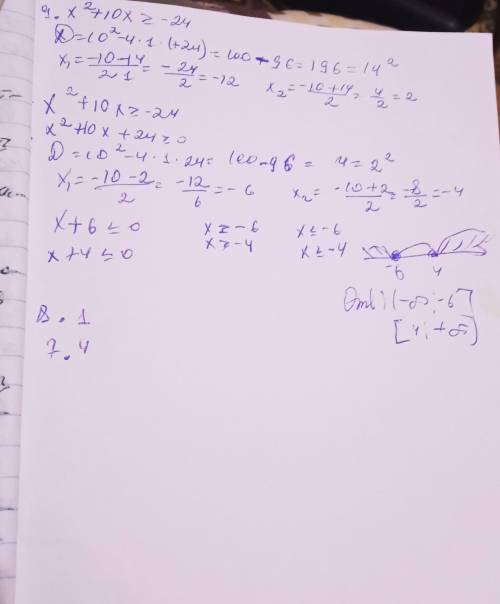 9. x²+10x ≥ -24
D=10²-4·1·(+24)=100-96=196=14²
x₁=(-10-14)/(2·1)=-24/2=-12 x₂=(-10+14)/2=4/2=2
x²+10x≥-24
x²+10x+24≥0
D=10²-4·1·24=100-96= 4=2²
x₁=(-10-2)/2=-12/6=-6 x₂=(-10+2)/2=-8/2=-4
x+6≤0 x≥-6 x≤-6
x+4≤0 x≥-4 x≤-4
-6 4
Ответ: (-∞;-6]
[4;+∞)
8. 1
7. 4